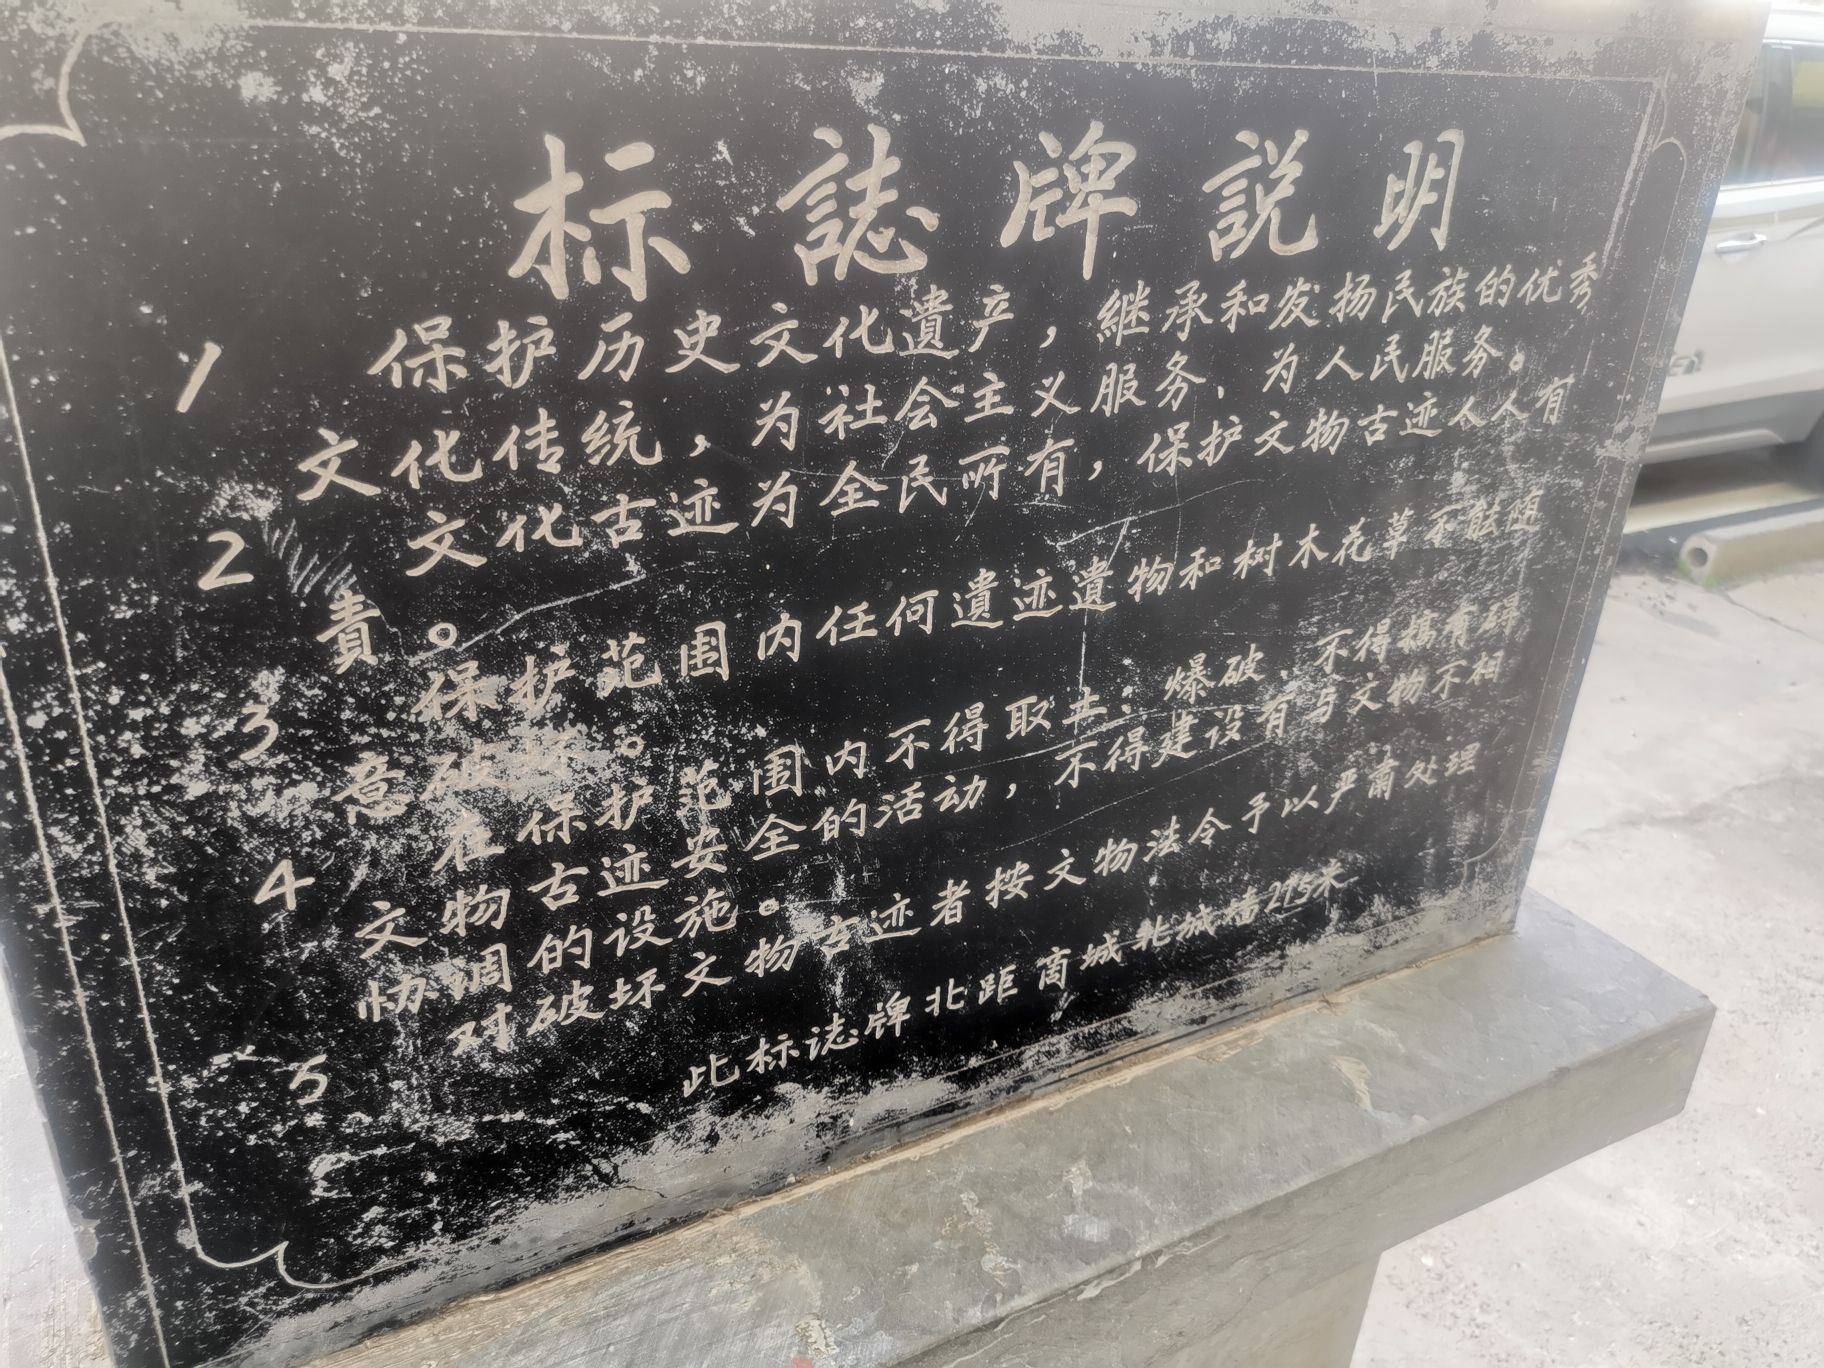 标誌牌説明
1 保护历史文化遺产，継承和发扬民族的优秀
文化传统，为社会主义服务，为人民服务。
2 文化古迹为全民所有，保护文物古迹人人有
責。
3 保护范围内任何遺迹遺物和树木花草不能随
意破坏。
4 在保护范围内不得取土、爆破、不得搞有碍
文物古迹安全的活动，不得建设有与文物不相
协调的设施。
5 对破坏文物古迹者按文物法令予以严肃处理
此标志牌北距商城北城墙295米